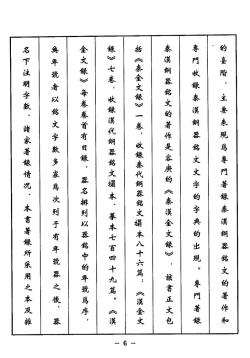 的臺階，主要表現爲專門著録秦漢銅器銘文的著作和
專門收録秦漢銅器銘文文字的字典的出現。專門著録
秦漢銅器銘文的著作是容庚的《秦漢金文録》，該書正文包
括《秦金文録》一卷，收録秦代銅器銘文拓本八十六篇；《漢金文
録》七卷，收録漢代銅器銘文拓本、摹本七百四十九篇。《漢
金文録》每卷卷首有目録，器名排列以器銘中的年號爲序，
無年號者以銘文字數多寡爲次列于有年號器之後，器
名下注明字數、諸家著録情況。本書著録所采用之本及雜
- 6 -